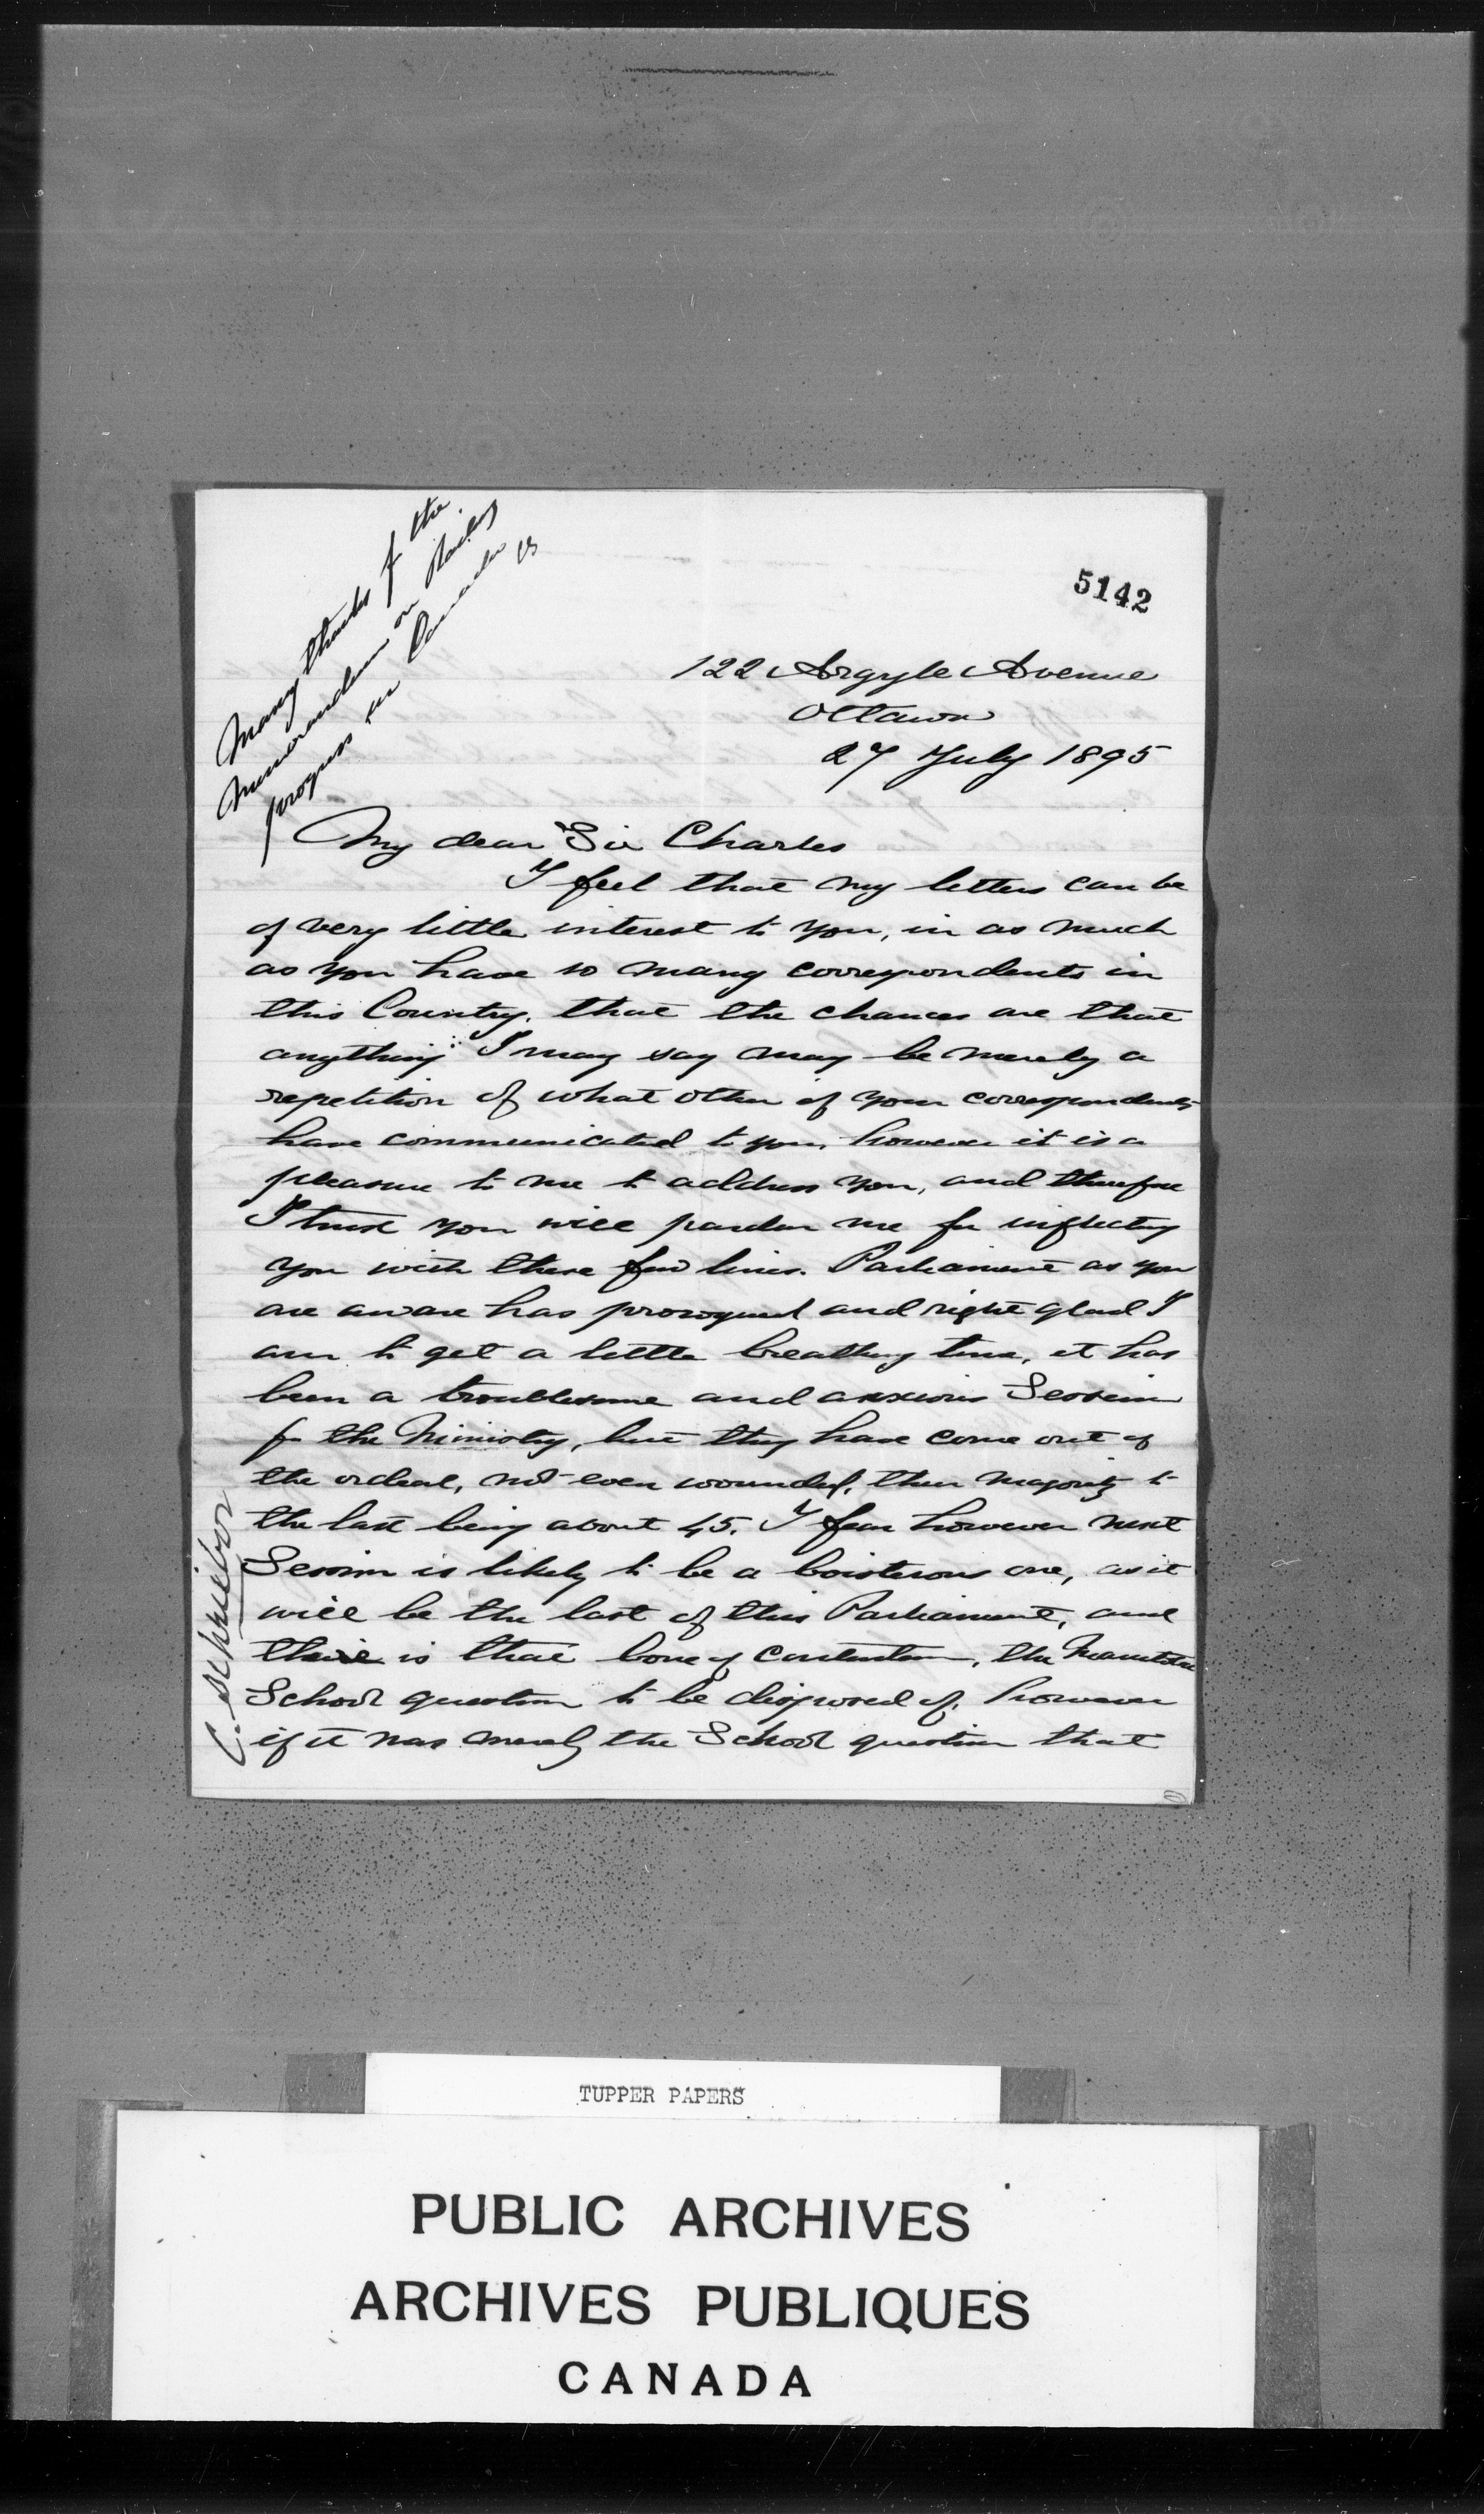 Many thanks for the
Memorandum on Railway
progress in Canada
5142
122 Argyle Avenue
Ottawa
27 July 1895
My dear Sir Charles
I feel that my letters can be
of very little interest to you, in as much
as you have so many correspondents in
this Country, that the chances are that
anything I may say may be merely a
repetition of what other of your correspondents
have communicated to you, however it is a
pleasure to me to address you, and therefore
I trust you will pardon me for inflicting
you with these few lines. Parliament as you
are aware has prorogued and right glad I
am to get a little breathing time, it has
been a troublesome and anxious Session
for the Ministry, but they have come out of
the ordeal, not even wounded, their majority to
the last being about 45. I fear however next
Session is likely to be a boisterous one, as it
will be the last of this Parliament, and
there is that bone of contention, the Manitoba
School question to be disposed of, however
if it was merely the School question that
C. Schreiber
TUPPER PAPERS
PUBLIC ARCHIVES
ARCHIVES PUBLIQUES
CANADA